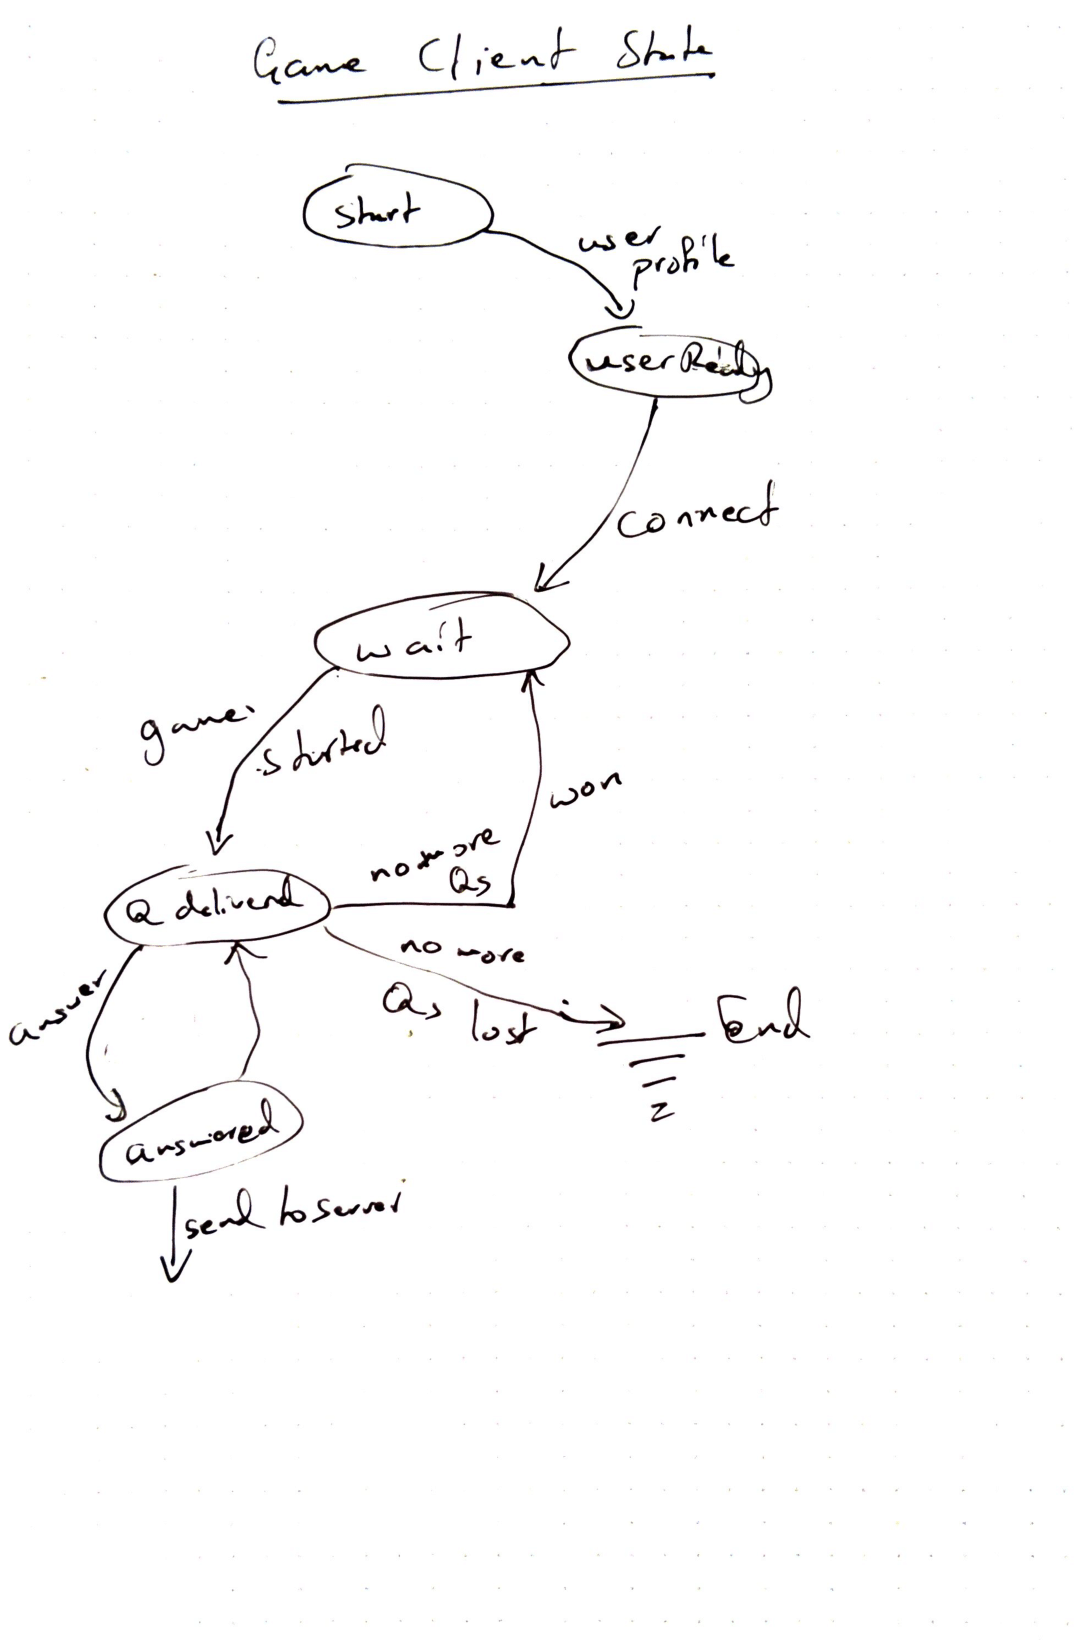 Game Client State
start
user
profile
userReady
connect
wait
game
started
won
no more
Qs
Q delivered
no more
Qs lost
End
answer
answered
send to server